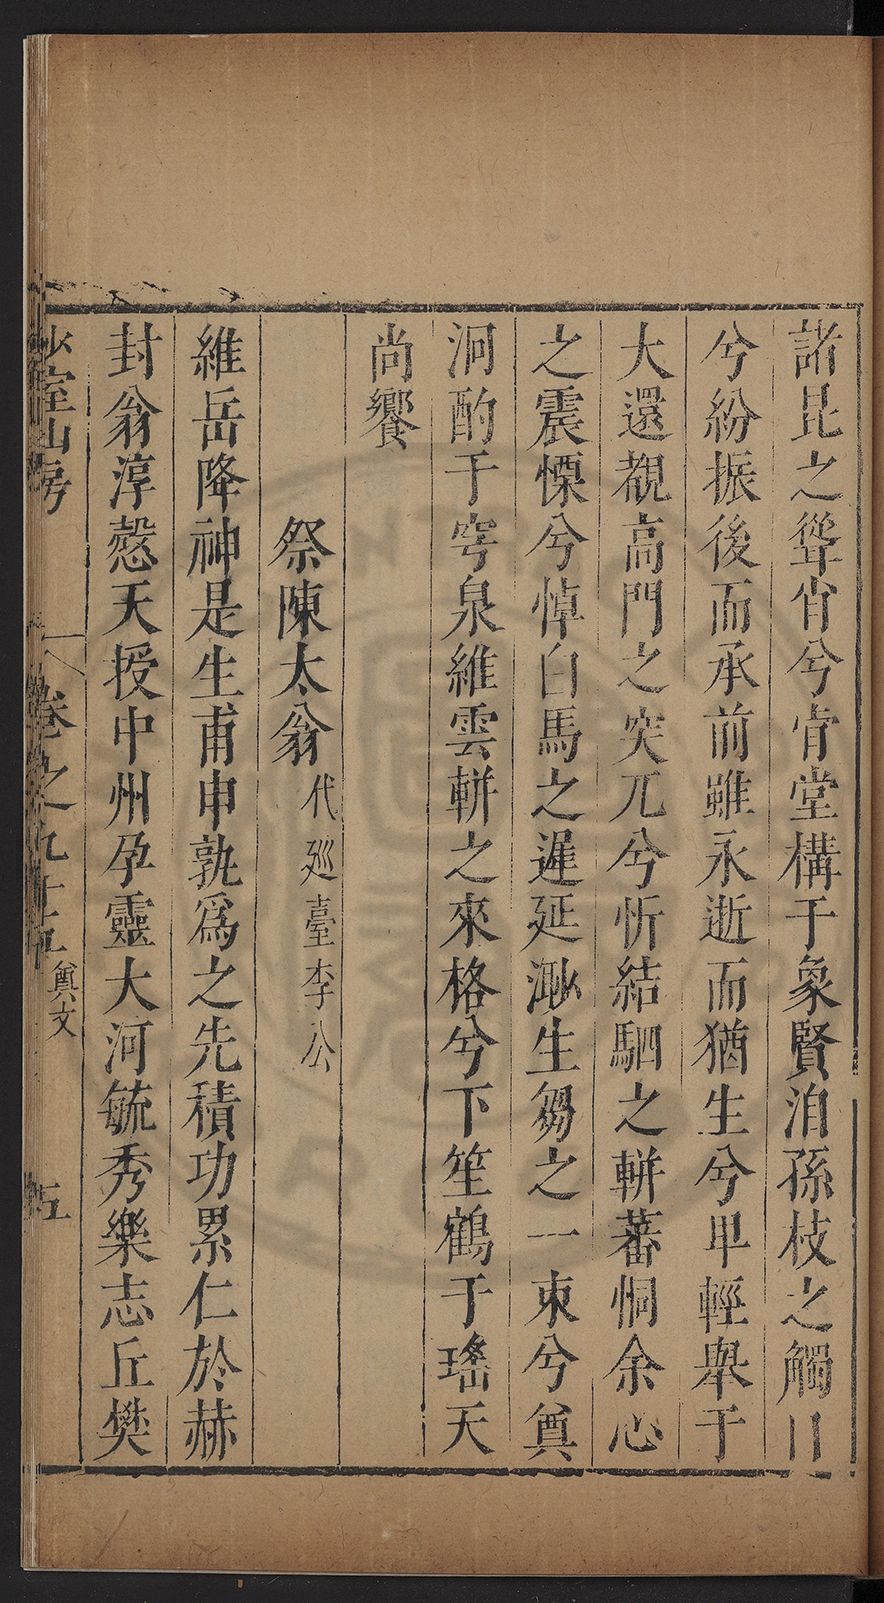 諸昆之聳肯兮肯堂構于象賢洎孫枝之觸目
兮紛振後而承前雖永逝而猶生兮早輕舉于
大還覩高門之突兀兮忻結駟之軿蕃恫余心
之震慄兮悼白馬之遲延渺生芻之一束兮奠
泂酌于窀泉維雲軿之來格兮下笙鶴于瑤天
尚饗
祭陳太翁 代廵臺李公
維岳降神是生甫申孰爲之先積功累仁於赫
封翁淳慤天授中州孕靈大河毓秀樂志丘樊
少室山房 卷之九十五 奠文 五